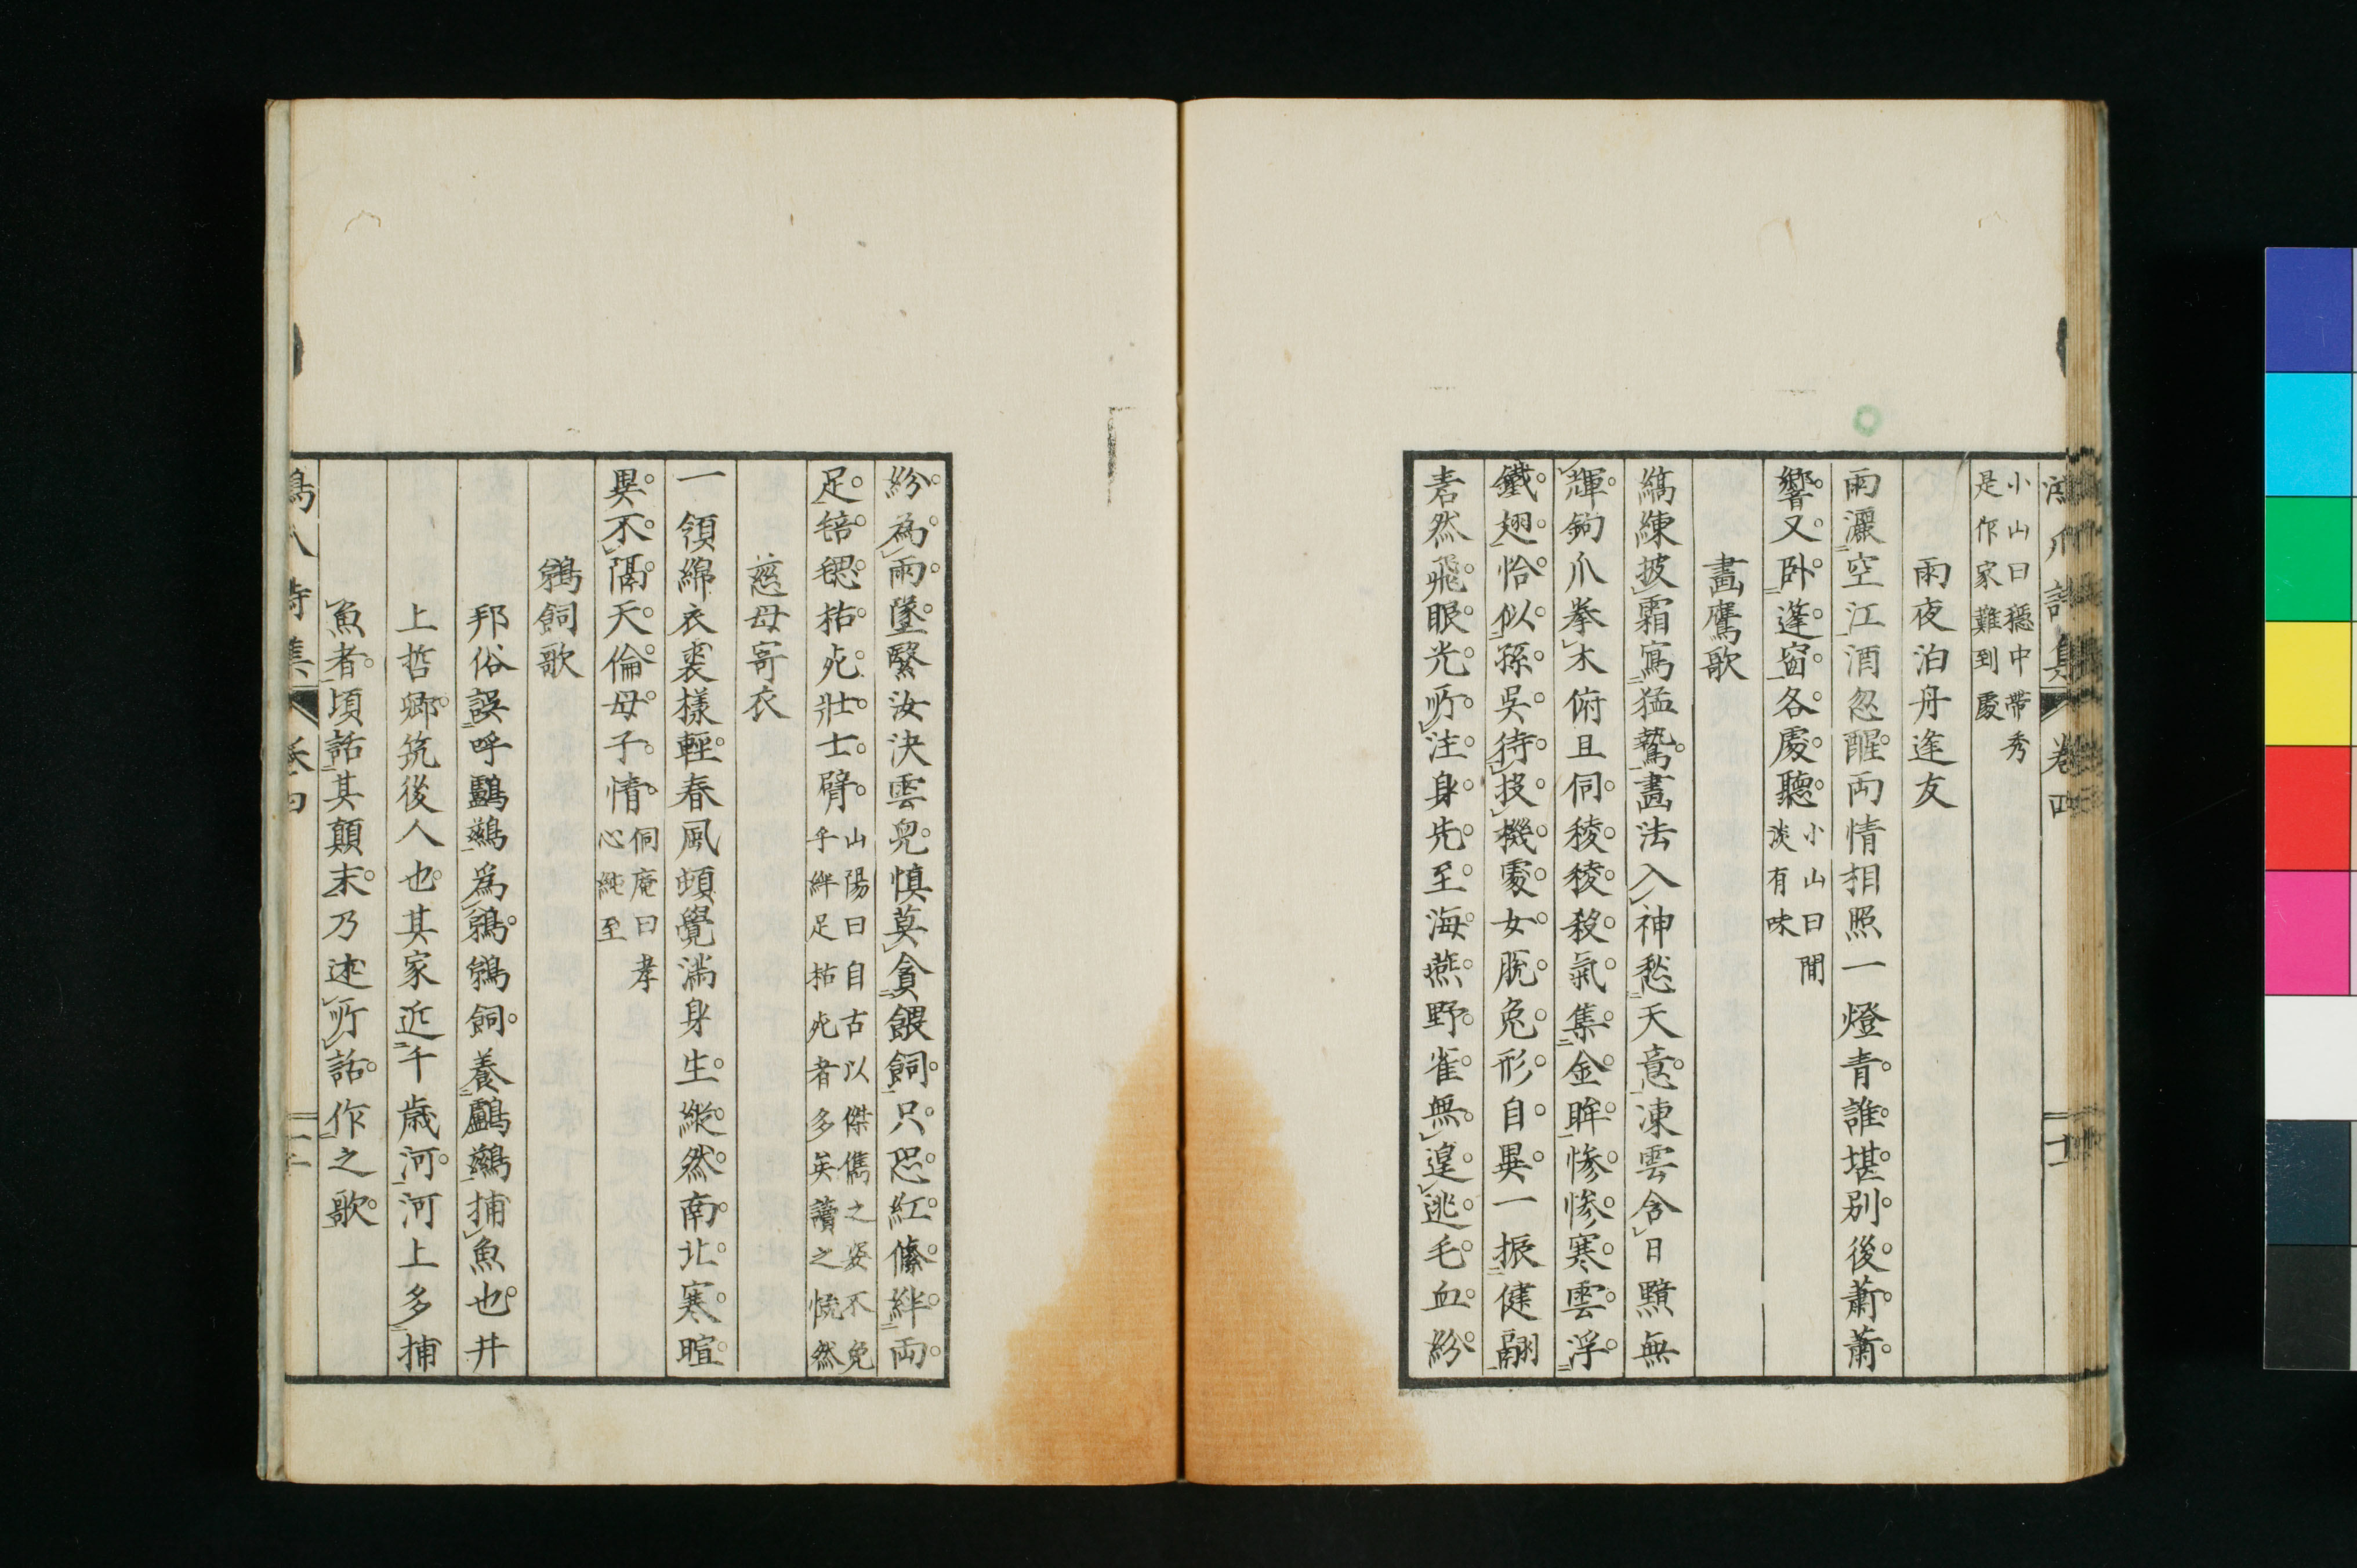 小山曰穩中帶秀
是作家難到處
雨夜泊舟逢友
雨灑空江酒忽醒両情相照一燈青誰堪別後蕭蕭
響又臥蓬窗各處聽
小山曰間
淡有味
畫鷹歌
縞練披霜寫猛鷙畫法入神愁天意凍雲含日黯無
輝鉤爪拳木俯且伺稜稜殺氣集金眸慘慘寒雲浮
鐵翅恰似孫吳待投機處女脫兔形自異一振健翮
砉然飛眼光所注身先至海燕野雀無遑逃毛血紛
紛為雨墜繄汝決雲兒慎莫貪餵飼只恐紅絛絆両
足毰毸枯死壯士臂
山陽曰自古以傑儁之姿不免
乎絆足枯死者多矣讀之慌然
慈母寄衣
一領綿衣裘樣輕春風頓覺滿身生縱然南北寒暄
異不隔天倫母子情
侗庵曰孝
心純至
鵜飼歌
邦俗誤呼鸕鷀爲鵜鵜飼養鸕鷀捕魚也井
上哲卿筑後人也其家近千歲河河上多捕
魚者頃話其顛末乃述所話作之歌